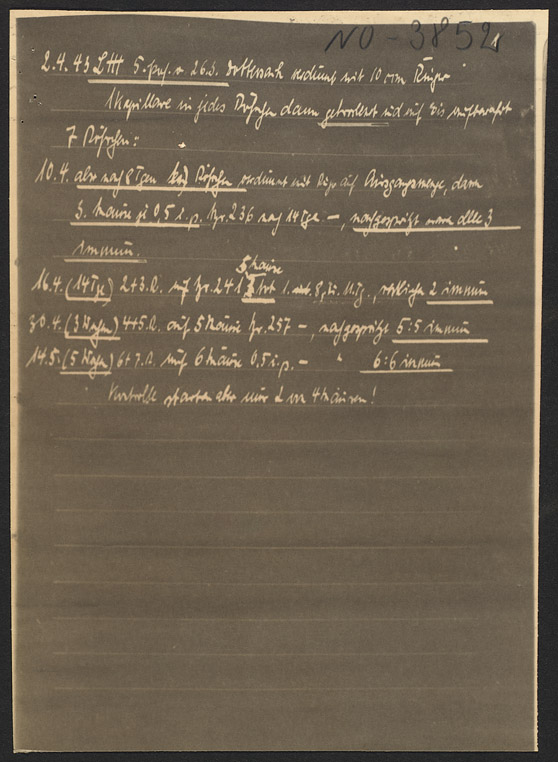 NO - 3852
2.4.43 LHH 5. pas. v. 26.3. Dottersack verdünnt mit 10 ccm Ringer
1 Kapillare in jedes Röhrchen dann getrocknet und auf Eis aufbewahrt
7 Röhrchen:
10.4. also nach 8 Tgen Röhrchen verdünnt mit auf Ausgangsmenge, dann
3 Mäuse je 0,5 i.p. Nr. 236 nach 14 Tge –, nachgespritzt waren alle 3
immun.
5 Mäuse
16.4. (14 Tge) 2+3.R. auf Nr. 241 tot 1. 8. 11. Tg., restliche 2 immun
30.4. (3 Wochen) 4+5.R. auf 5 Mäuse Nr. 257 –, nachgespritzt 5:5 immun
14.5. (5 Wochen) 6+7.R. auf 6 Mäuse 0,5 i.p. – " 6:6 immun
Kontrolle starben aber nur 2 von 4 Mäusen!